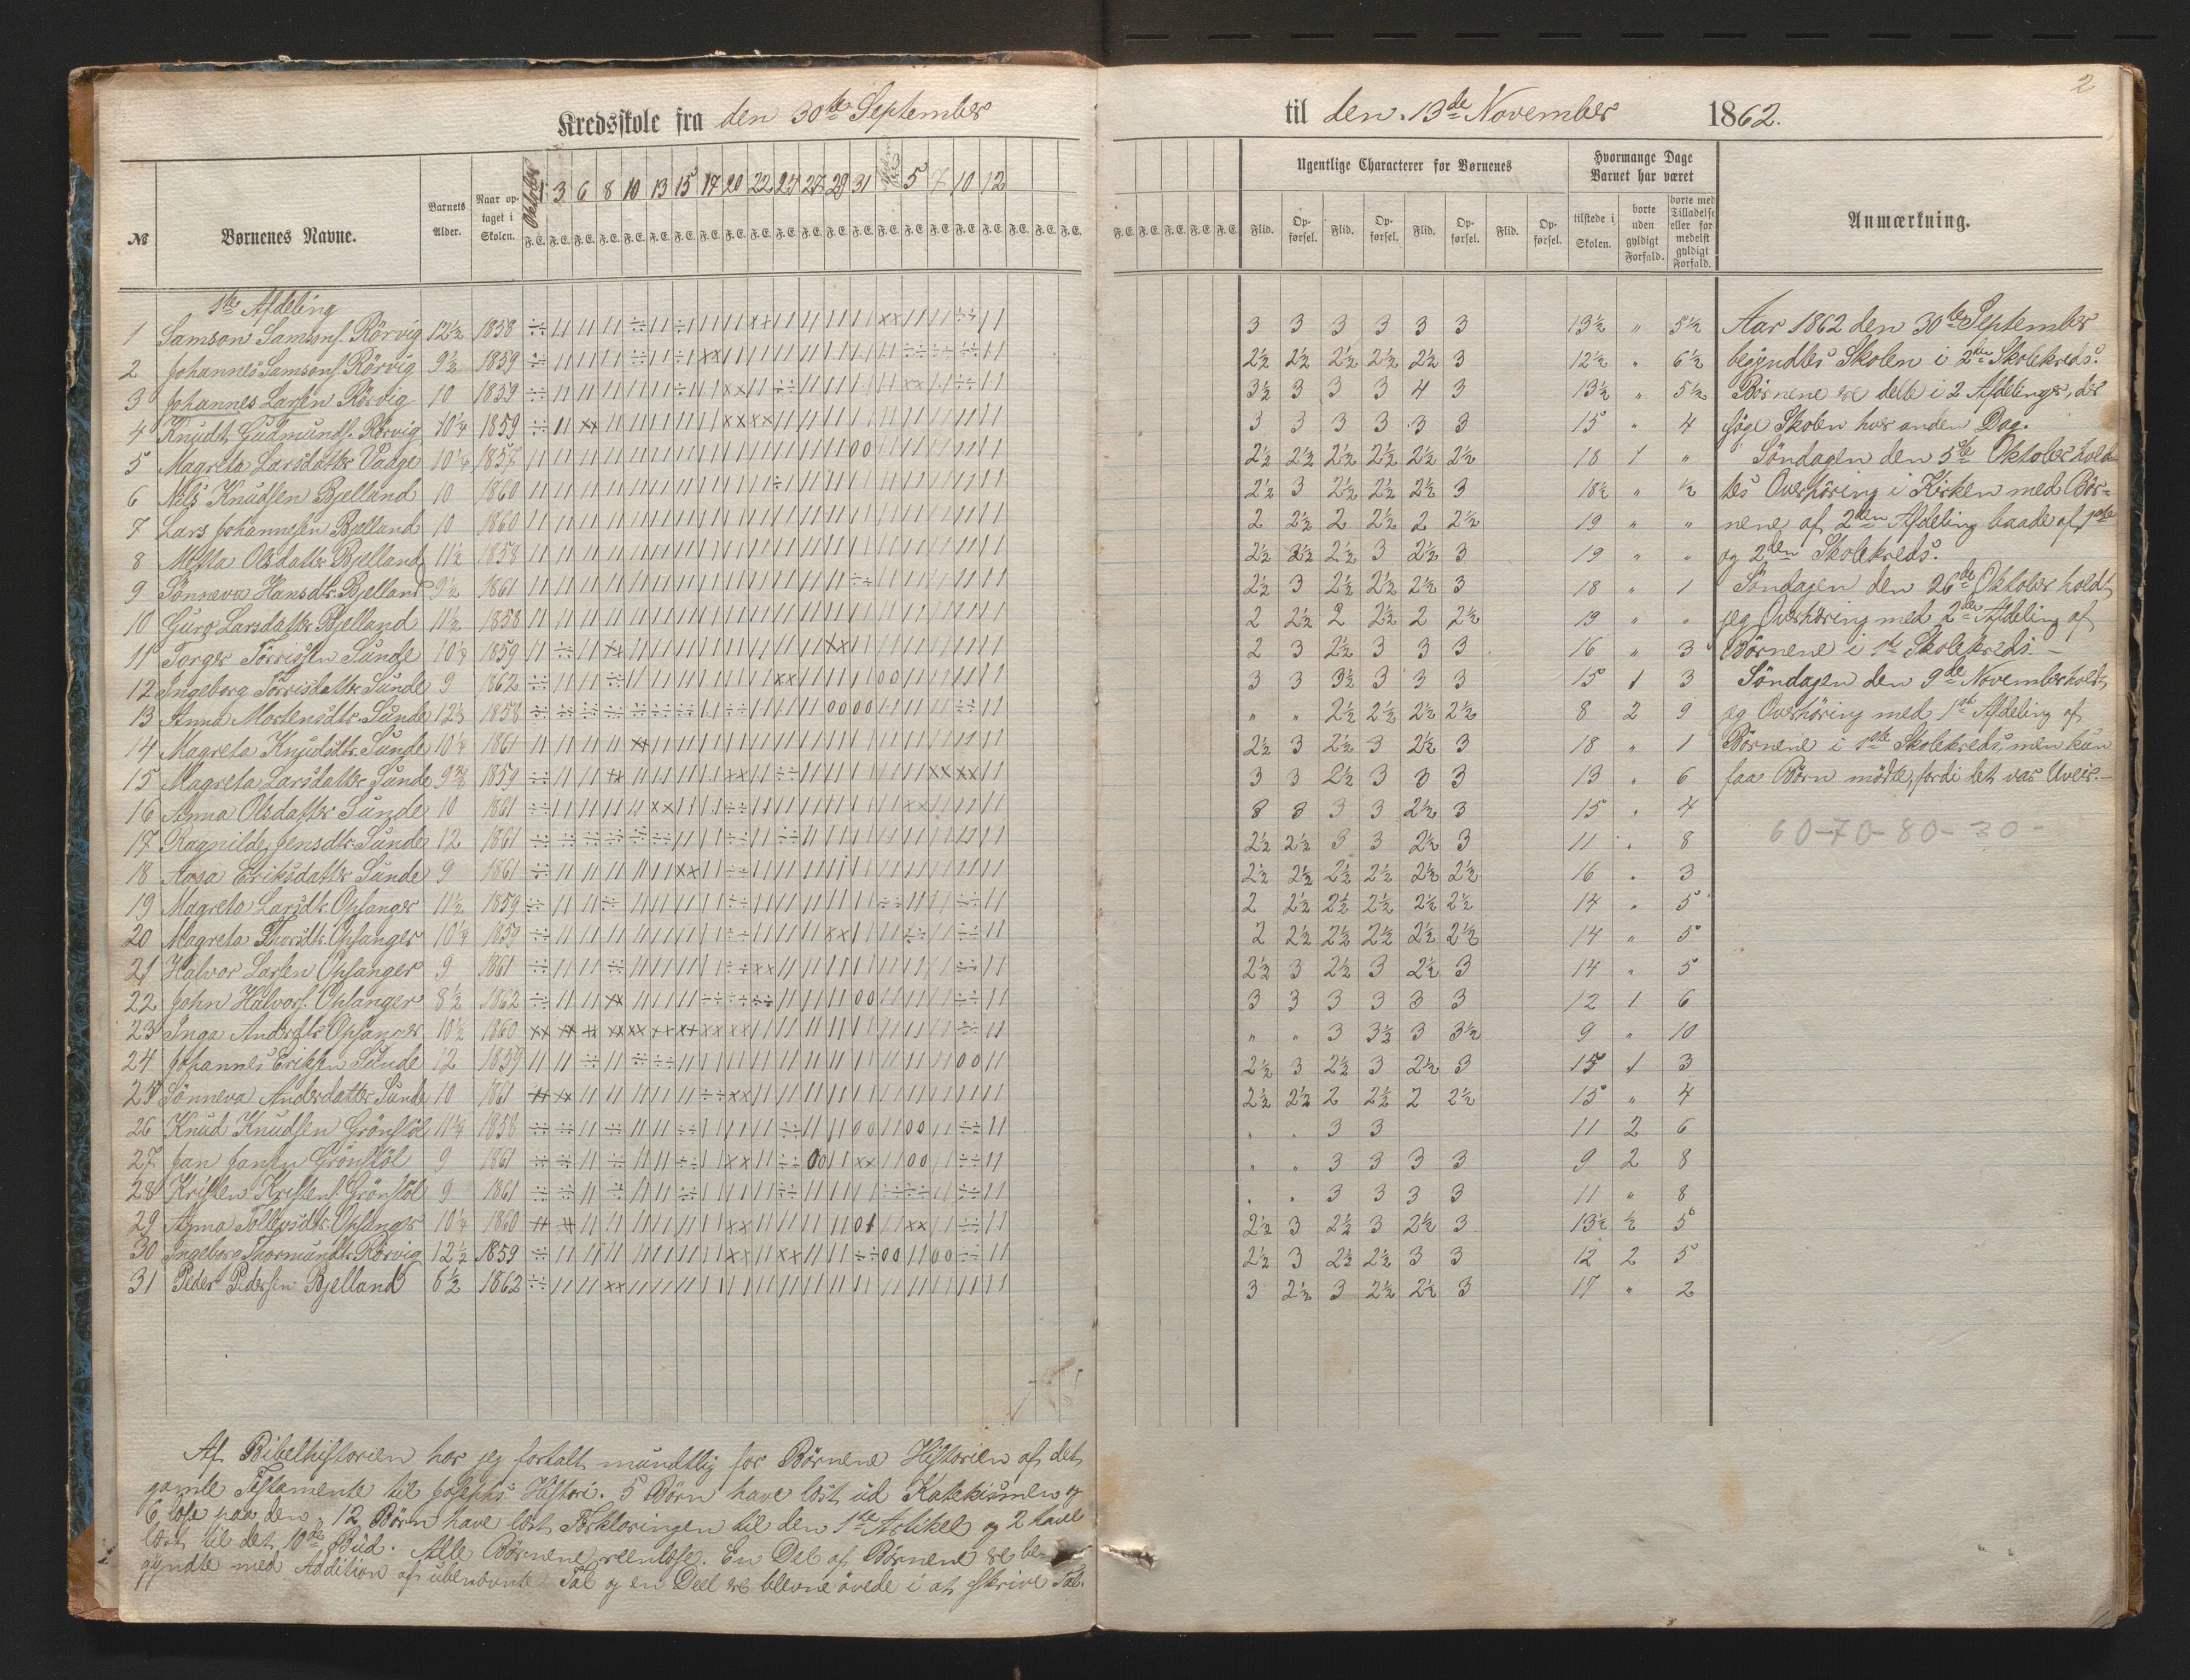 2
Kredsskole fra den 30te September
til den 13de November 1862.
№ Børnenes Navne. Barnets Alder. Naar optaget i Skolen. Oktober 1 3 6 8 10 13 15 17 20 22 24 27 29 31 5 7 10 12
Ugentlige Characterer for Børnenes
Flid. Opførsel. Flid. Opførsel. Flid. Opførsel. Flid. Opførsel.
Hvormange Dage Barnet har været
tilstede i Skolen. borte uden gyldigt Forfald. borte med Tilladelse eller formedelst gyldigt Forfald.
Anmærkning.
1ste Afdeling
1 Samson Samsons. Rörvig 12½ 1858 3 3 3 3 3 3 13½ " 5½
2 Johannes Samsons. Rörvig 9½ 1859 2½ 2½ 2½ 2½ 2½ 3 12½ " 6½
3 Johannes Larsen Rörvig 10 1859 3½ 3 3 3 4 3 13½ " 5½
4 Knudt Gudmunds. Rörvig 10¼ 1859 3 3 3 3 3 3 15 " 4
5 Magreta Larsdatter Vaage 10¼ 1857 2½ 2½ 2½ 2½ 2½ 2½ 18 1 "
6 Nils Knudsen Bjelland 10 1860 2½ 3 2½ 2½ 2½ 3 18½ " ½
7 Lars Johannesen Bjelland 10 1860 2 2½ 2 2½ 2 2½ 19 " "
8 Metta Olsdatter Bjelland 11½ 1858 2½ 2½ 2½ 3 2½ 3 19 " "
9 Sönneva Hansdtr. Bjelland 9½ 1861 2½ 3 2½ 2½ 2½ 3 18 " 1
10 Guro Larsdatter Bjelland 11½ 1858 2 2½ 2 2½ 2 2½ 19 " "
11 Torger Törrissen Sunde 10¼ 1859 2 3 2½ 3 3 3 16 " 3
12 Ingeborg Törrisdatter Sunde 9 1862 3 3 3½ 3 3 3 15 1 3
13 Anna Mortensdtr. Sunde 12½ 1858 " " 2½ 2½ 2½ 2½ 8 2 9
14 Magreta Knudsdtr. Sunde 10¼ 1861 2½ 3 2½ 3 2½ 3 18 " 1
15 Magreta Larsdatter Sunde 9¾ 1859 3 3 2½ 3 3 3 13 " 6
16 Anna Olsdatter Sunde 10 1861 3 3 3 3 2½ 3 15 " 4
17 Ragnilde Jensdtr. Sunde 12 1861 2½ 2½ 3 3 2½ 3 11 " 8
18 Aasa Eriksdatter Sunde 9 1861 2½ 2½ 2½ 2½ 2½ 2½ 16 " 3
19 Magreta Larsdtr. Opsanger 11½ 1859 2 2½ 2½ 2½ 2½ 2½ 14 " 5
20 Magreta Thorsdtr. Opsanger 10¼ 1859 2 2½ 2½ 2½ 2½ 2½ 14 " 5
21 Halvor Larsen Opsanger 9 1861 2½ 3 2½ 3 2½ 3 14 " 5
22 John Halvors. Opsanger 8½ 1862 3 3 3 3 3 3 12 1 6
23 Inga Andersdtr. Opsanger 10½ 1860 " " 3 3½ 3 3½ 9 " 10
24 Johannes Eriksen Sunde 12 1859 2½ 3 2½ 3 2½ 3 15 1 3
25 Sönneva Andersdatter Sunde 10 1861 2½ 2½ 2 2½ 2 2½ 15 " 4
26 Knud Knudsen Grönstöl 11¼ 1858 " " 3 3 11 2 6
27 Jan Jansen Grönstöl 9 1861 " " 3 3 3 3 9 2 8
28 Kristen Kristens. Grönstöl 9 1861 " " 3 3 3 3 11 " 8
29 Anna Tollevsdtr. Opsanger 10¼ 1860 2½ 3 2½ 3 2½ 3 13½ ½ 5
30 Ingeborg Thormundtr. Rörvig 12½ 1859 2½ 3 2½ 2½ 3 3 12 2 5
31 Peder Pedersen Bjelland 6½ 1862 3 2½ 3 2½ 2½ 3 17 " 2
Aar 1862 den 30te September
begyndtes Skolen i 2den Skolekreds.
Börnene ere delte i 2 Afdelinger, der
söge Skolen hver anden Dag.
Söndagen den 5te Oktober hold-
tes Overhöring i Kirken med Bör-
nene af 2den Afdeling baade af 1ste
og 2den Skolekreds.
Söndagen den 26de Oktober holdt
jeg Overhöring med 2den Afdeling af
Börnene i 1ste Skolekreds. –
Söndagen den 9de November holdt
jeg Overhöring med 1ste Afdeling af
Börnene i 1ste Skolekreds, men kun
faa Börn mödte, fordi det var Uveir. –
60-70-80-30-
Af Bibelhistorien har jeg fortalt mundtlig for Börnene Historien af det
gamle Testamente til Josephs Histori. 5 Börn have læst ud Katekismen og
6 læse paa den, 12 Börn have læst Forklaringen til den 1ste Artikel og 2 have
læst til det 10de Bud. Alle Börnene reenlæse. En Del af Börnene ere be-
gyndte med Addition af ubenævnte Tal og en Deel ere blevne övede i at skrive Tal.